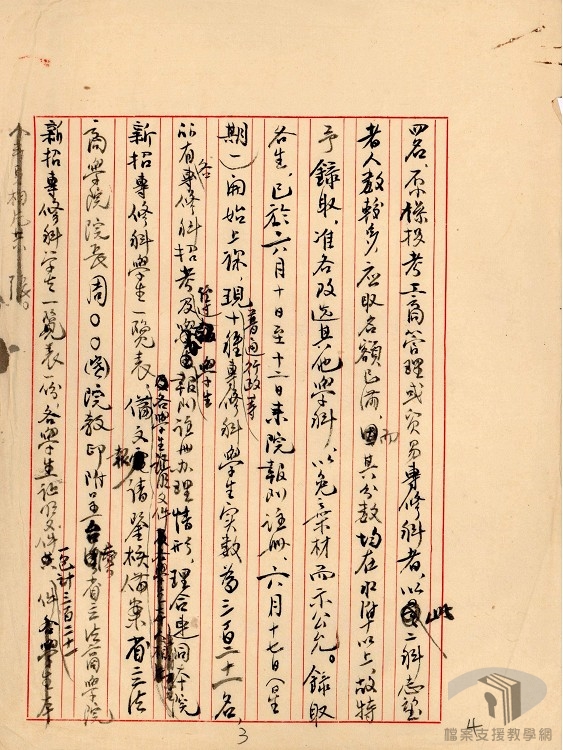 四名,原係投考工商管理或貿易專修科者,以此二科志望
者人数較多,应取名額已滿,而其分数均在水準以上,故特
予錄取,准各改选其他學科,以免棄材而示公允。錄取
各生,已於六月十日至十二日來院報到註冊,六月十七日(星
期一)開始上課,現普通行政等十種專修科學生实数為三百二十一名,
所有各專修科招考及學生報到註冊办理情形,理合連同本院
新招專修科學生一覽表、各學生証明文件備文報請鑒核備案 省立法
商學院院長周〇〇 院教印附呈台灣省立法商學院
新招專修科學生一覽表一份,各學生証明文件共計三百二十一件各學生本
年
3
4
檔案支援教學網